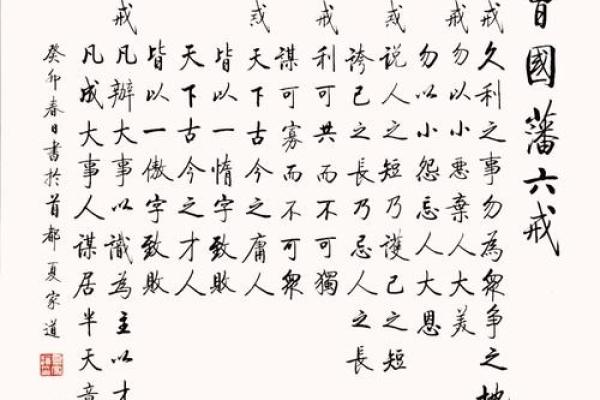 曾國藩六戒
戒久利之事勿為衆爭之地
戒勿以小惡棄人大美
勿以小怨忘人大恩
戒說人之短乃護己之短
誇己之長乃忌人之長
戒利可共而不可獨
謀可寡而不可衆
戒天下古今之庸人
皆以一惰字致敗
天下古今之才人
皆以一傲字致敗
戒凡辦大事以識為主以才
凡成大事人謀居半天意
癸卯春日書於首都夏家道